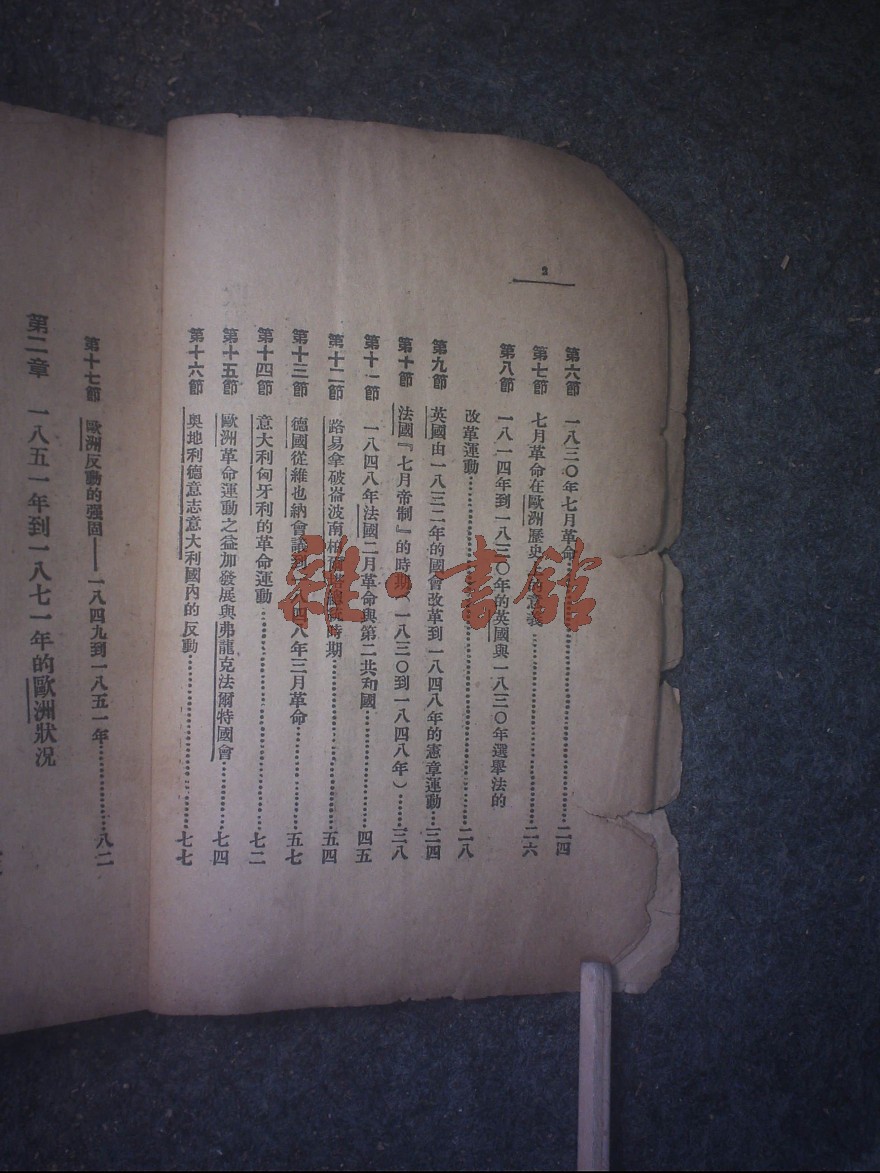 2
第六節 一八三〇年七月革命………二四
第七節 七月革命在歐洲歷史上的意義………二六
第八節 一八一四年到一八三〇年的英國與一八三〇年選舉法的
改革運動………二八
第九節 英國由一八三二年的國會改革到一八四八年的憲章運動…三四
第十節 法國『七月帝制』的時期（一八三〇到一八四八年）……三八
第十一節 一八四八年法國二月革命與第二共和國………四五
第十二節 路易拿破崙波南柏爾塔總統時期………五四
第十三節 德國從維也納會議到一八四八年三月革命………五七
第十四節 意大利匈牙利的革命運動………七二
第十五節 歐洲革命運動之益加發展與弗龍克法爾特國會………七四
第十六節 奧地利德意志意大利國內的反動………七七
第十七節 歐洲反動的强固——一八四九到一八五一年………八二
第二章 一八五一年到一八七一年的歐洲狀況
雜·書館